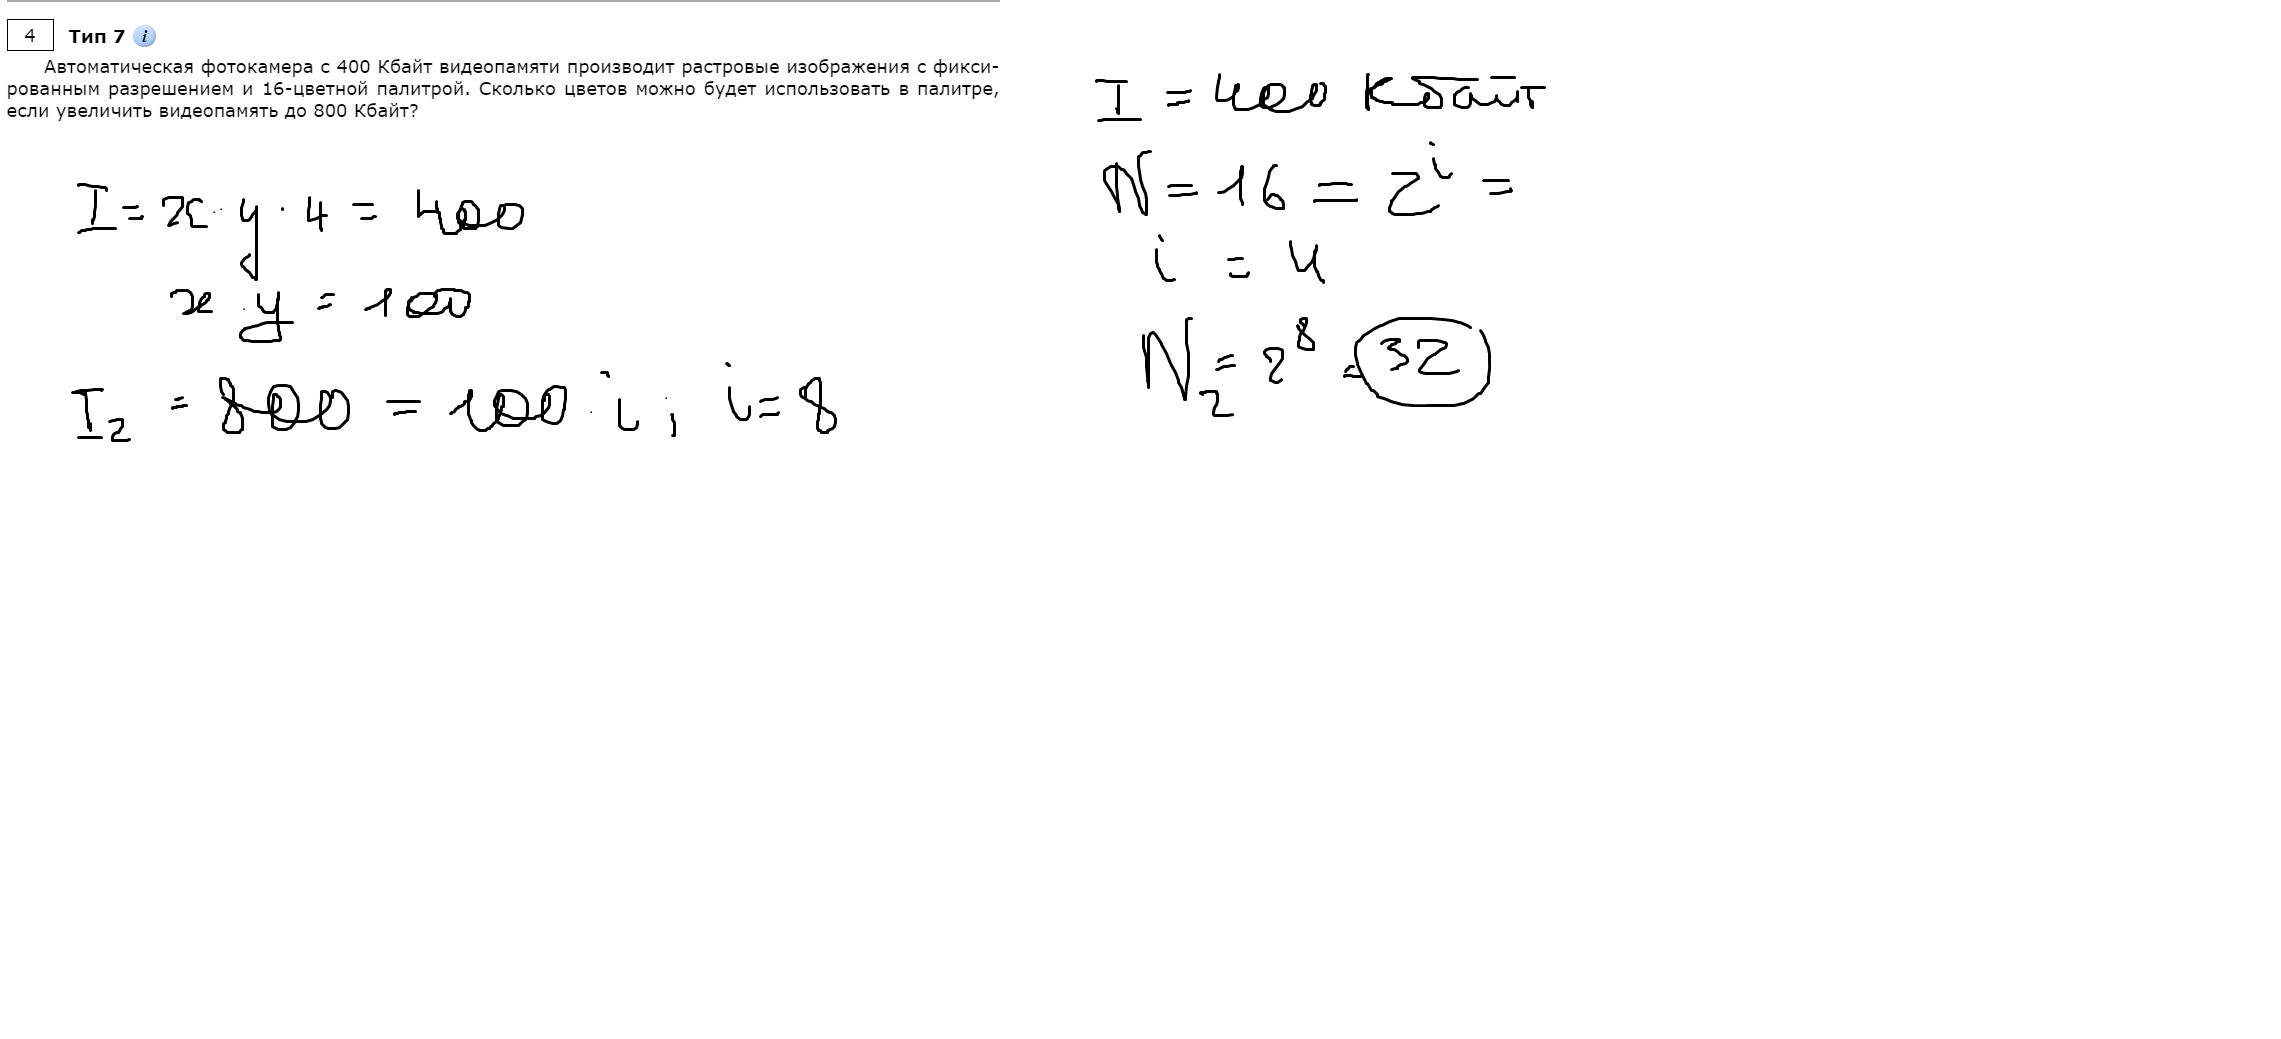 4 Тип 7 i
Автоматическая фотокамера с 400 Кбайт видеопамяти производит растровые изображения с фикси-
рованным разрешением и 16-цветной палитрой. Сколько цветов можно будет использовать в палитре,
если увеличить видеопамять до 800 Кбайт?
I = x · y · 4 = 400
x · y = 100
I₂ = 800 = 100 · i , i = 8
I = 400 Кбайт
N = 16 = 2ⁱ =
i = 4
N₂ = 2⁸ = 32